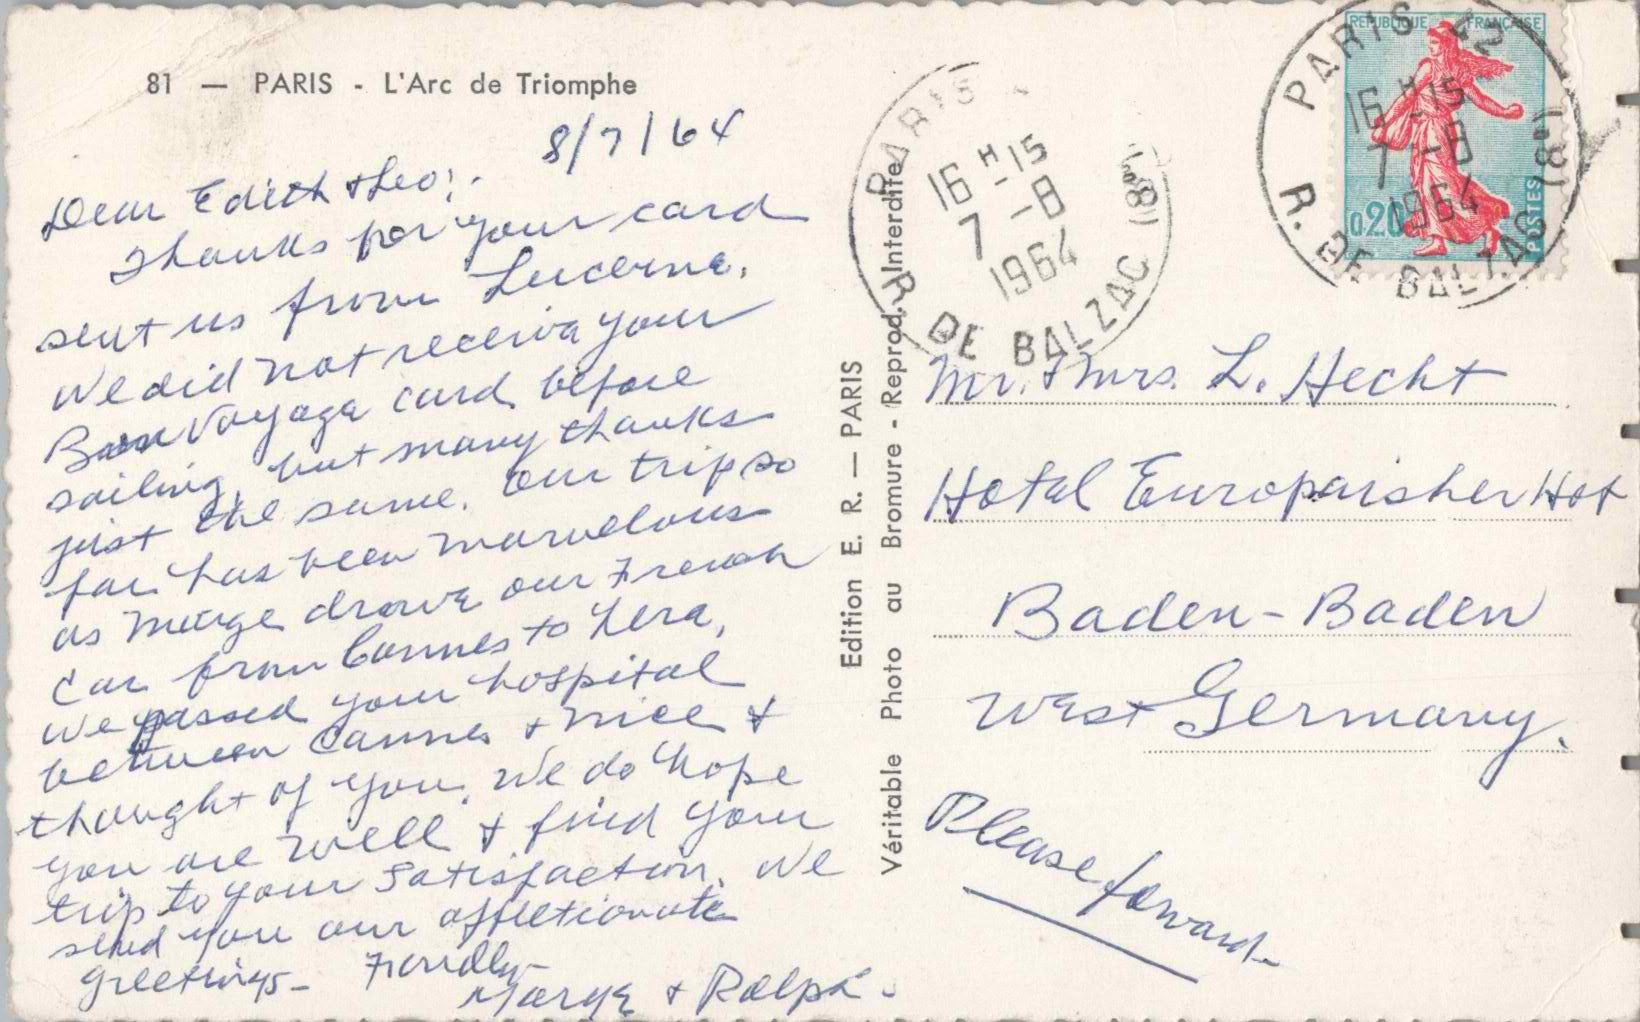 81 — PARIS - L'Arc de Triomphe
8/7/64
Dear Edith & Leo:.
Thanks for your card
sent us from Lucerne.
We did not receive your
Bon Voyage card before
sailing, but many thanks
just the same. Our trip so
far has been marvelous
as Marge drove our French
car from Cannes to here,
We passed your hospital
between Cannes & Nice &
thought of you. We do hope
you are well & find your
trip to your satisfaction. We
send you our affectionate
greetings- Fondly-
Marge & Ralph.
Edition E. R. — PARIS
Véritable Photo au Bromure - Reprod. Interdite
PARIS
16 H 15
7 -8
1964
R. DE BALZAC (8e)
REPUBLIQUE FRANÇAISE
0,20
POSTES
PARIS 22
16 H 15
7 -8
1964
R. DE BALZAC (8e)
Mr. & Mrs. L. Hecht
Hotel Europaisher Hof
Baden-Baden
West Germany.
Please forward-